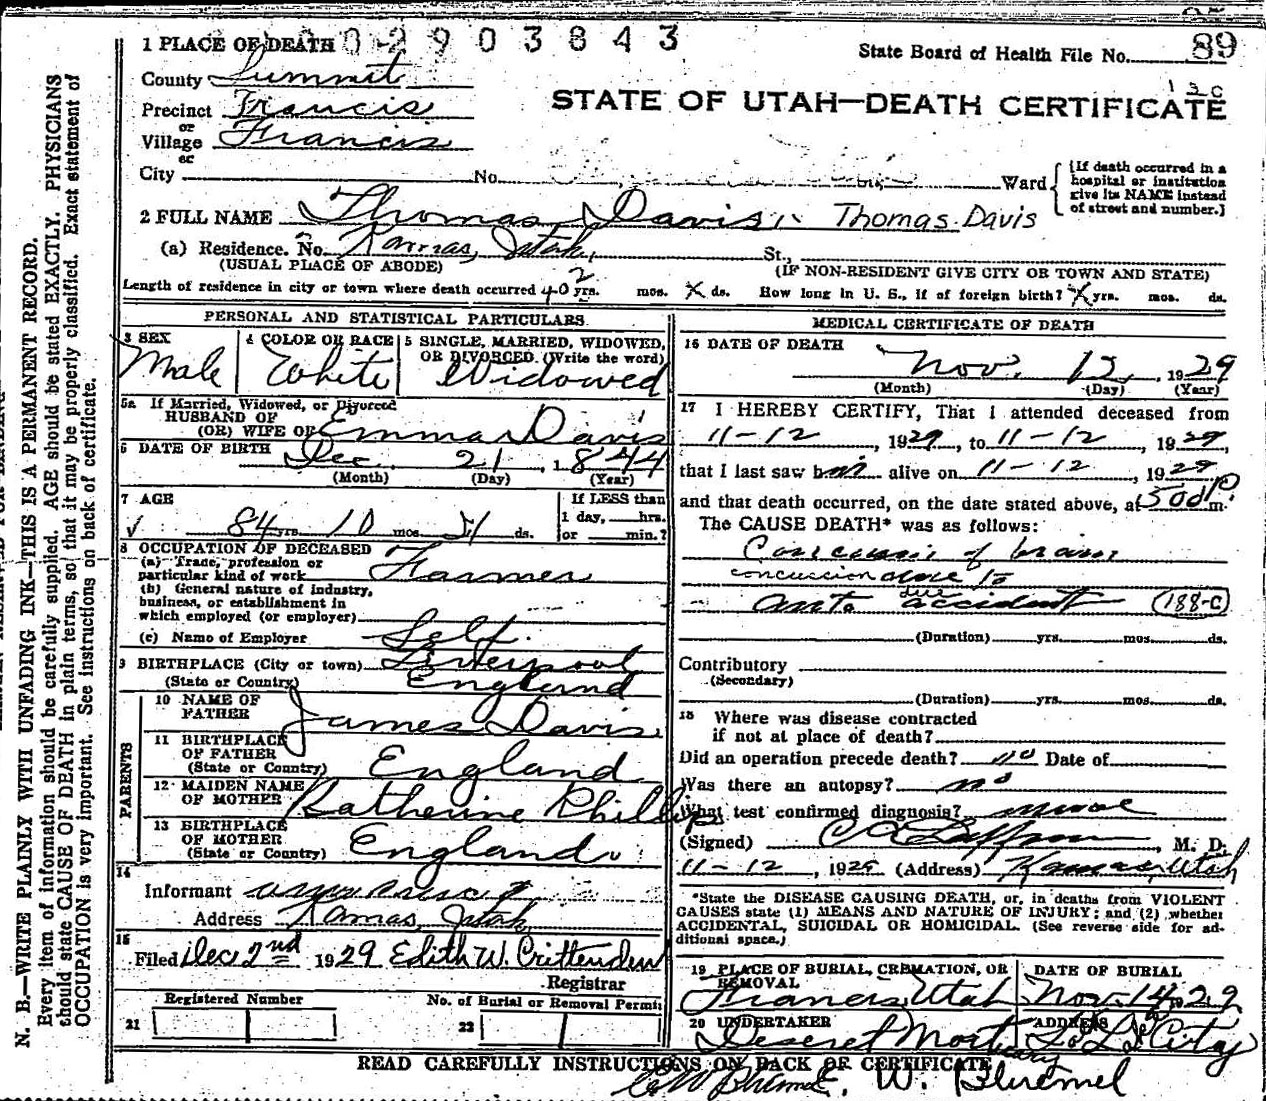 2903843
1 PLACE OF DEATH
State Board of Health File No. 89
County Summit
130
STATE OF UTAH—DEATH CERTIFICATE
Precinct Francis
or
Village Francis
or
City No. Ward
(If death occurred in a hospital or institution give its NAME instead of street and number.)
2 FULL NAME Thomas Davis, Thomas Davis
(a) Residence. No. Kamas, Utah, St.,
(USUAL PLACE OF ABODE) (IF NON-RESIDENT GIVE CITY OR TOWN AND STATE)
Length of residence in city or town where death occurred 40 yrs. mos. X ds. How long in U. S., if of foreign birth? X yrs. mos. ds.
PERSONAL AND STATISTICAL PARTICULARS
3 SEX
Male
4 COLOR OR RACE
White
5 SINGLE, MARRIED, WIDOWED, OR DIVORCED. (Write the word)
Widowed
5a If Married, Widowed, or Divorced
HUSBAND OF
(OR) WIFE OF Emma Davis
6 DATE OF BIRTH Dec. 21, 1844
(Month) (Day) (Year)
7 AGE
84 yrs 10 mos ds.
If LESS than
1 day, hrs.
or min.?
8 OCCUPATION OF DECEASED
(a) Trade, profession or
particular kind of work Farmer
(b) General nature of industry,
business, or establishment in
which employed (or employer)
(c) Name of Employer Self.
9 BIRTHPLACE (City or town) Liverpool
(State or Country) England
PARENTS
10 NAME OF
FATHER James Davis
11 BIRTHPLACE
OF FATHER
(State or Country) England
12 MAIDEN NAME
OF MOTHER Katherine Phillips
13 BIRTHPLACE
OF MOTHER
(State or Country) England
14
Informant
Address Kamas, Utah
15
Filed Dec 2nd 1929 Edith W. Crittenden
Registrar
Registered Number
21
No. of Burial or Removal Permit
22
MEDICAL CERTIFICATE OF DEATH
16 DATE OF DEATH
Nov. 12, 1929
(Month) (Day) (Year)
17 I HEREBY CERTIFY, That I attended deceased from
11-12, 1929, to 11-12, 1929,
that I last saw him alive on 11-12, 1929
and that death occurred, on the date stated above, at 500 P. m.
The CAUSE DEATH* was as follows:
Concussion of brain
concussion due to
due
auto accident (188-c)
(Duration) yrs. mos. ds.
Contributory
(Secondary)
(Duration) yrs. mos. ds.
18 Where was disease contracted
if not at place of death?
Did an operation precede death? no Date of
Was there an autopsy? no
What test confirmed diagnosis?
(Signed) , M. D.
11-12, 1929 (Address) Kamas, Utah
*State the DISEASE CAUSING DEATH, or, in deaths from VIOLENT
CAUSES state (1) MEANS AND NATURE OF INJURY; and (2) whether
ACCIDENTAL, SUICIDAL OR HOMICIDAL. (See reverse side for ad-
ditional space.)
19 PLACE OF BURIAL, CREMATION, OR
REMOVAL
Francis, Utah
DATE OF BURIAL
Nov. 14 1929
20 UNDERTAKER
Deseret Mortuary
ADDRESS
S. L. City
READ CAREFULLY INSTRUCTIONS ON BACK OF CERTIFICATE
E. W. Bluemel
N. B.—WRITE PLAINLY WITH UNFADING INK—THIS IS A PERMANENT RECORD.
Every item of information should be carefully supplied. AGE should be stated EXACTLY. PHYSICIANS
should state CAUSE OF DEATH in plain terms, so that it may be properly classified. Exact statement of
OCCUPATION is very important. See instructions on back of certificate.